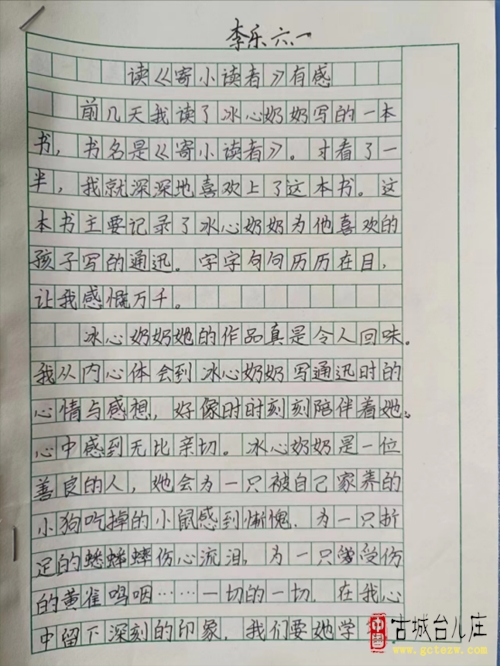 李乐六.一
读《寄小读者》有感
前几天我读了冰心奶奶写的一本
书，书名是《寄小读者》。才看了一
半，我就深深地喜欢上了这本书。这
本书主要记录了冰心奶奶为他喜欢的
孩子写的通迅。字字句句历历在目，
让我感慨万千。
冰心奶奶她的作品真是令人回味。
我从内心体会到冰心奶奶写通迅时的
心情与感想，好像时时刻刻陪伴着她。
心中感到无比亲切。冰心奶奶是一位
善良的人，她会为一只被自己家养的
小狗吃掉的小鼠感到惭愧，为一只折
足的蟋蟀伤心流泪，为一只受伤
的黄雀呜咽……一切的一切，在我心
中留下深刻的印象，我们要她学
中国 古城台儿庄
www.gctezw.com